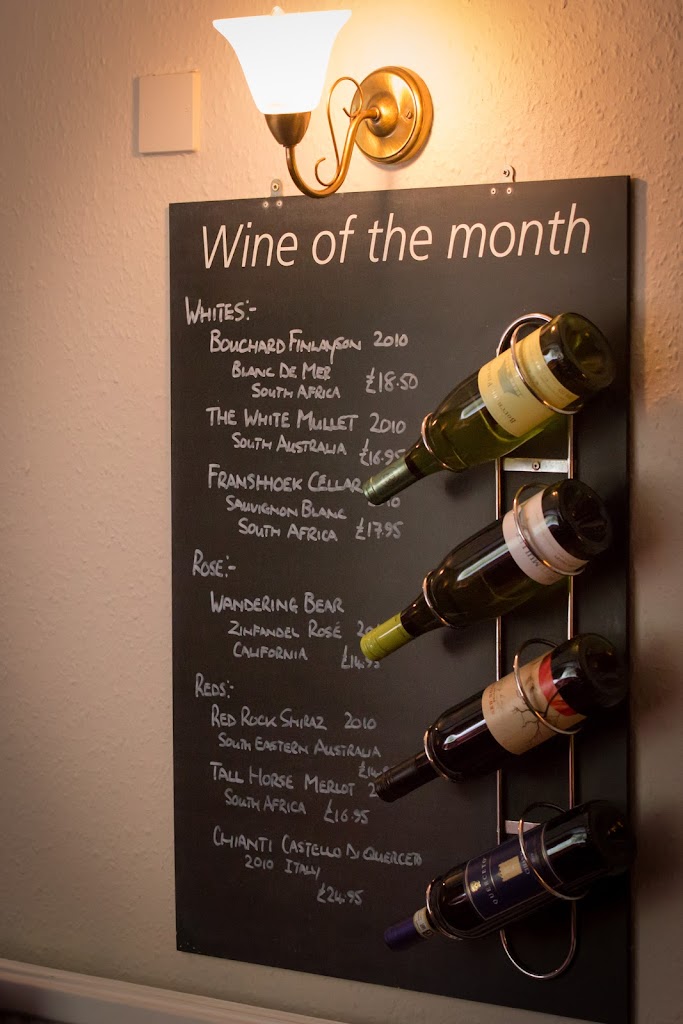 Wine of the month
WHITES:-
BOUCHARD FINLAYSON 2010
BLANC DE MER
SOUTH AFRICA £18.50
THE WHITE MULLET 2010
SOUTH AUSTRALIA £16.95
FRANSHHOEK CELLAR
SAUVIGNON BLANC
SOUTH AFRICA £17.95
ROSE:-
WANDERING BEAR
ZINFANDEL ROSÉ
CALIFORNIA £14.95
REDS:-
RED ROCK SHIRAZ 2010
SOUTH EASTERN AUSTRALIA
TALL HORSE MERLOT
SOUTH AFRICA £16.95
CHIANTI CASTELLO DI QUERCETO
2010 ITALY
£24.95